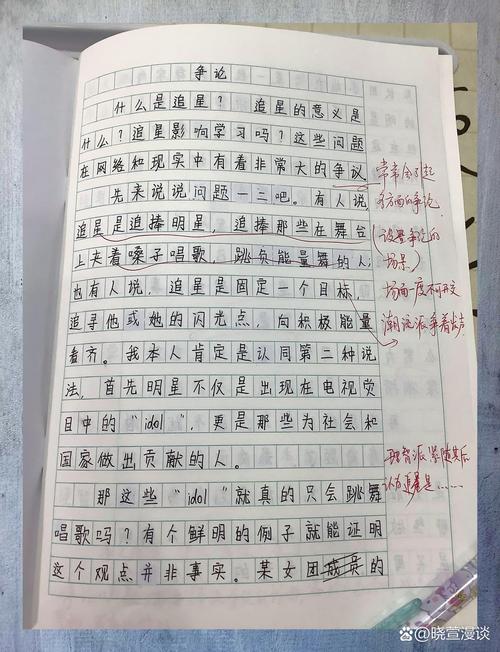 争论
什么是追星？ 追星的意义是
什么？追星影响学习吗？这些问题
在网络和现实中有着非常大的争议
先来说说问题一二吧。有人说，
追星是追捧明星，追捧那些在舞台
上夹着嗓子唱歌，跳负能量舞的人；
也有人说，追星是固定一个目标，
追寻他或她的闪光点，向积极能量
看齐。我本人肯定是认同第二种说
法，首先明星不仅是出现在电视党
目中的“idol”，更是那些为社会和
国家做出贡献的人。
那这些“idol”就真的只会跳舞
唱歌吗？有个鲜明的例子就能证明
这个观点并非事实。某女团成员的
常常会引起
多方面的争论
（设置争论的
场景）
场面一度不可开交
潮流派争着发声
理智派紧随其后
认为追星是……
@晓萱漫谈